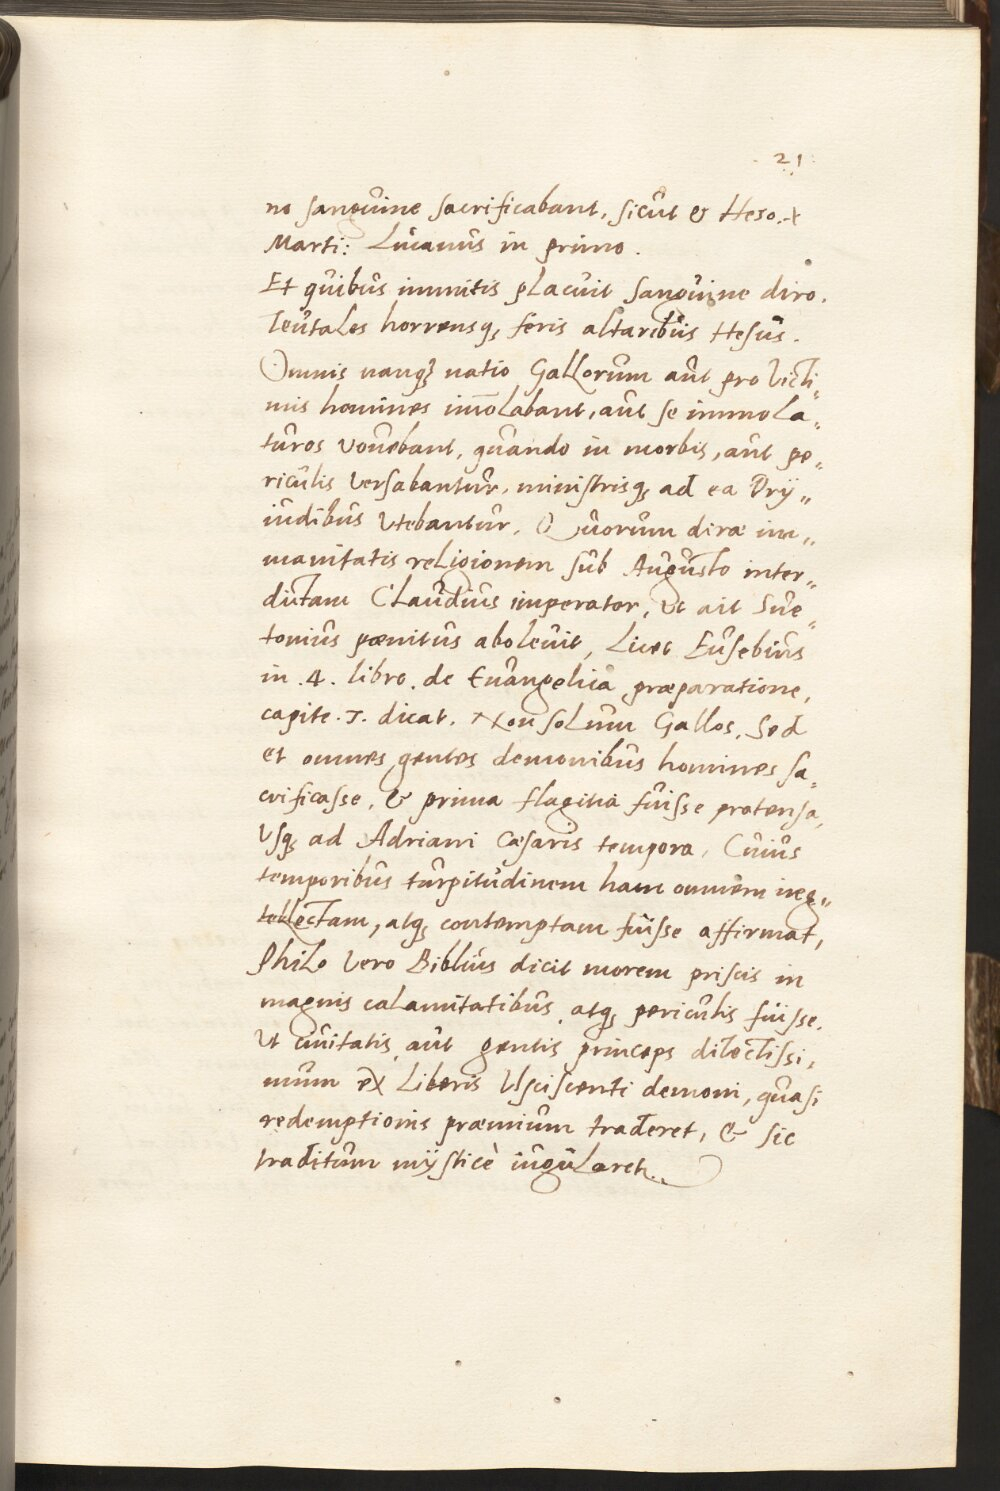 21
no sanguine sacrificabant, sicut & Heso. +
Marti: Lucanus in primo.
Et quibus immitis placuit sanguine diro.
Teutates horrensq; feris altaribus Hesus.
Omnis namq; natio Gallorum aut pro victi„
mis homines im̄olabant, aut se immola„
turos vovebant, quando in morbis, aut pe„
riculis versabantur, ministrisq; ad ea Drÿ„
iudibus Utebantur. Quorum diræ im„
manitatis religionem sub Augusto inter„
dictam Claudius imperator, ut ait Sue„
tonius pœnitus abolevit, Licet Eusebius
in .4. libro. de Evangelica præparatione,
capite. 7. dicat. Non solum Gallos, Sed
et omnes gentes demonibus homines sa„
crificasse, & prima flagitia fuisse protensa,
Usq; ad Adriani Cæsaris tempora, Cuius
temporibus turpitudinem hanc omnem neg„
lectam, atq; contemptam fuisse affirmat,
Philo vero Biblius dicit morem priscis in
magnis calamitatibus atq; periculis fuisse.
Ut civitatis aut gentis princeps dilectissi„
mum ex Liberis Ulsciscenti demoni, quasi
redemptionis præmium traderet, & sic
traditum mÿsticè iugularet.